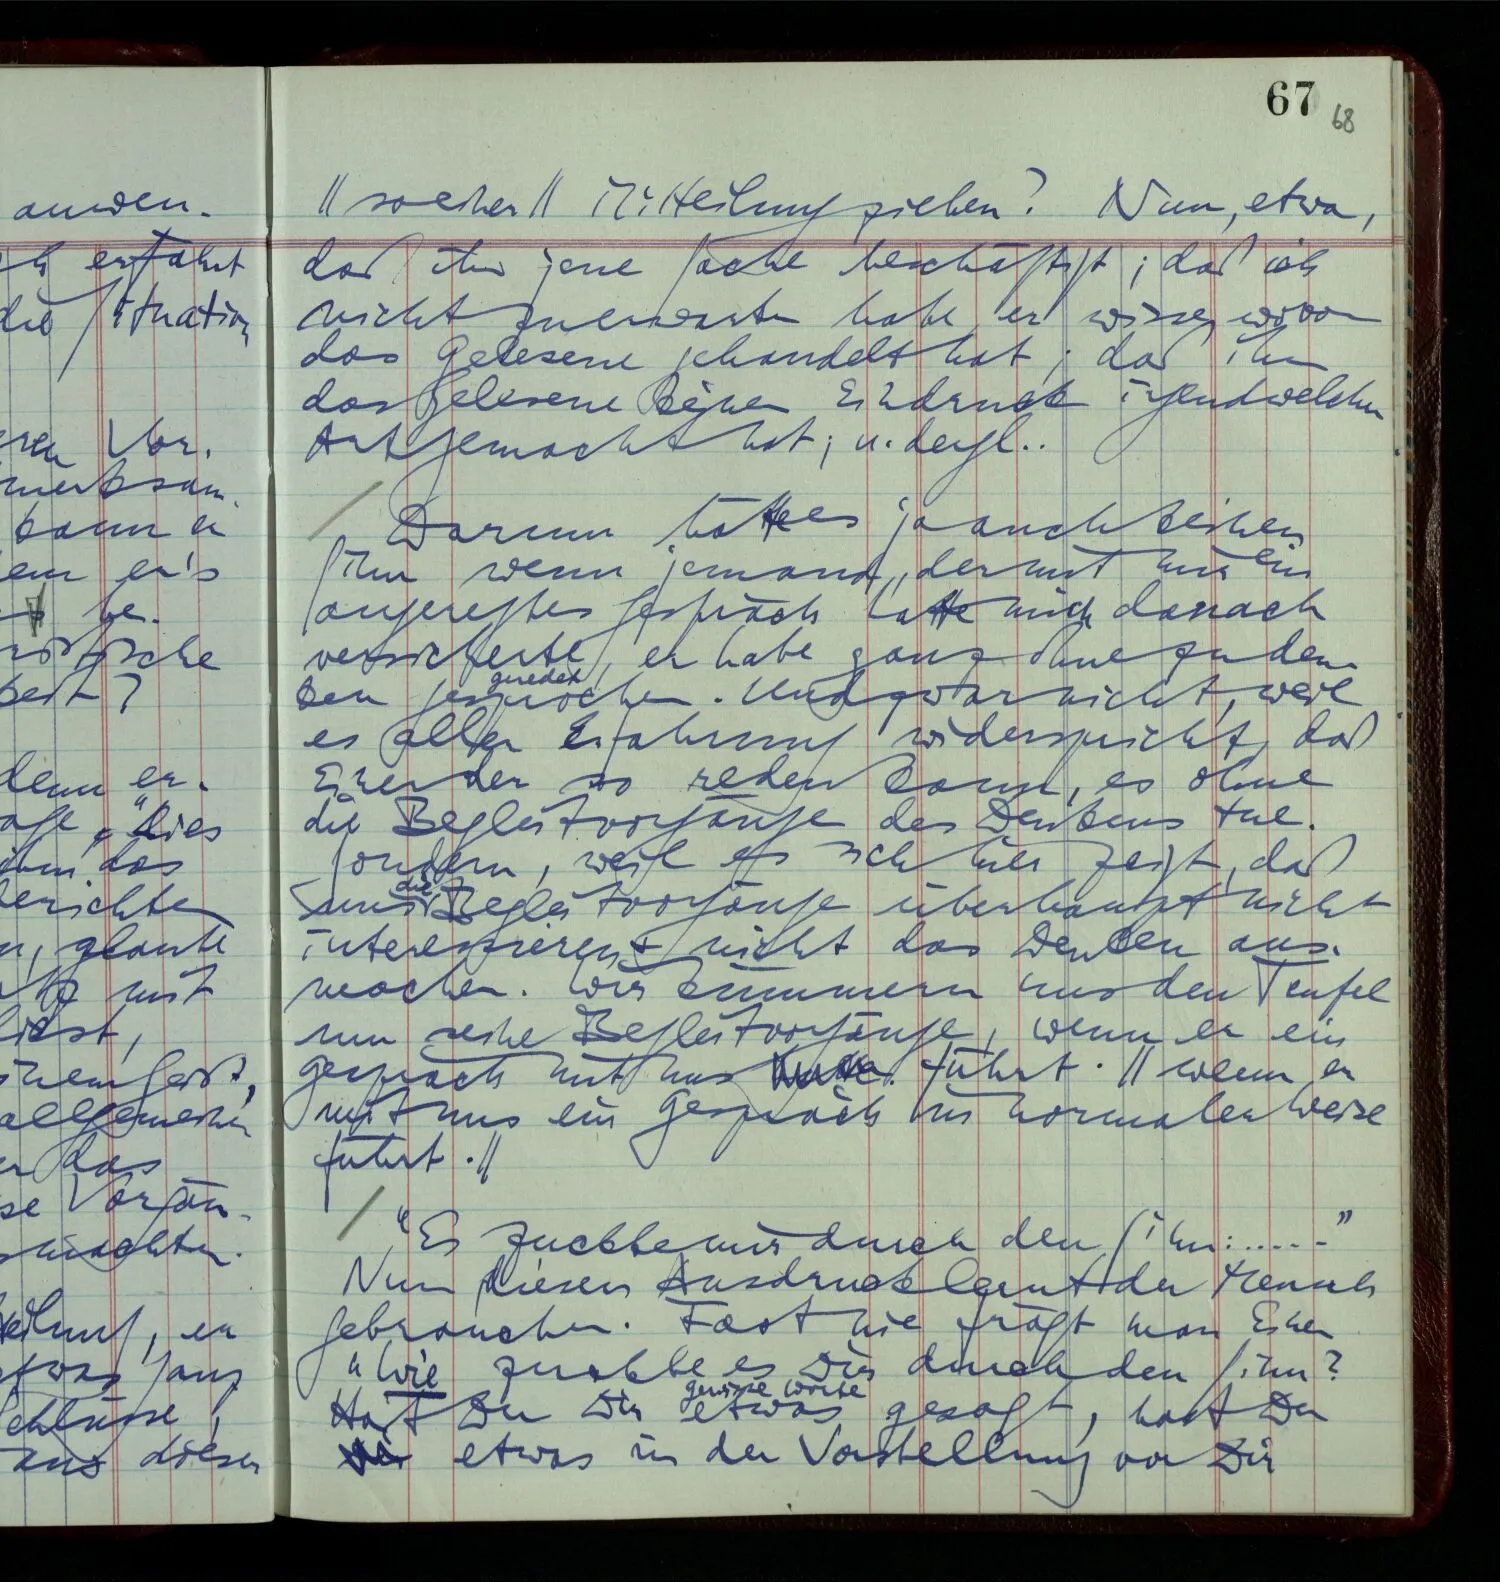 anwen-
erfährt
die Situation
Vor-
merksam
kann er
er's
be-
denn er-
"Dies
ihm das
berichten
glaubte
mit
liest,
allgemeinen
das
Vorgän-
er
etwas ganz
Schlüsse,
aus dieser
67
68
// solcher // Mitteilung ziehen? Nun, etwa,
daß ihn jene Sache beschäftigt; daß ich
nicht zu erwarten habe er wisse, wovon
das Gelesene gehandelt hat; daß ihm
das Gelesene keinen Eindruck irgendwelcher
Art gemacht hat; u. dergl..
Darum hätte es ja auch keinen
Sinn wenn jemand, der mit mir ein
angeregtes Gespräch hatte mich danach
versicherte, er habe ganz ohne zu den-
geredet
ken gesprochen. Und zwar nicht, weil
es aller Erfahrung widerspricht, daß
Einer der so reden kann, es ohne
die Begleitvorgänge des Denkens tue.
Sondern, weil es sich hier zeigt, daß
die
uns Begleitvorgänge überhaupt nicht
interessieren, nicht das Denken aus-
machen. Wir kümmern uns den Teufel
um seine Begleitvorgänge, wenn er ein
Gespräch mit uns führt. // wenn er
mit uns ein Gespräch in normaler Weise
führt. //
"Es zuckte mir durch den Sinn: ....."
Nun diesen Ausdruck lernt der Mensch
gebrauchen. Fast nie frägt man Einen
"Wie zuckte es Dir durch den Sinn?
gewisse Worte
Hast Du Dir etwas gesagt, hast Du
etwas in der Vorstellung vor Dir